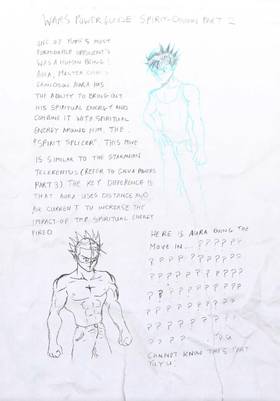 WARS POWER GUIDE SPIRIT-
ONE OF 'S MOST
FORMIDABLE OPPONENT'S
WAS A HUMAN BEING!
AURA, MASTER
AURA HAS
THE ABILITY TO BRING OUT
HIS SPIRITUAL ENERGY AND
COMBINE IT WITH SPIRITUAL
ENERGY AROUND HIM. THE
"SPIRIT SPLICER". THIS MOVE
IS SIMILAR TO THE
(REFER TO POWERS
PART 3). THE KEY DIFFERENCE IS
THAT AURA USES DISTANCE AND
AIR CURRENT TO INCREASE THE
IMPACT OF THE SPIRITUAL ENERGY
FIRED
HERE IS AURA DOING THE
MOVE IN... ? ? ? ? ? ?
? ? ? ? ? ? ? ? ?
? ? ? ? ? ? ? ? ?
? ? ? ? ? ? ? ? ?
? ? ? ? ? ? ? ? ?
? ? ? ? ? ? ? ? ?
? ? ? ? ? ? ?
CANNOT KNOW THIS PART